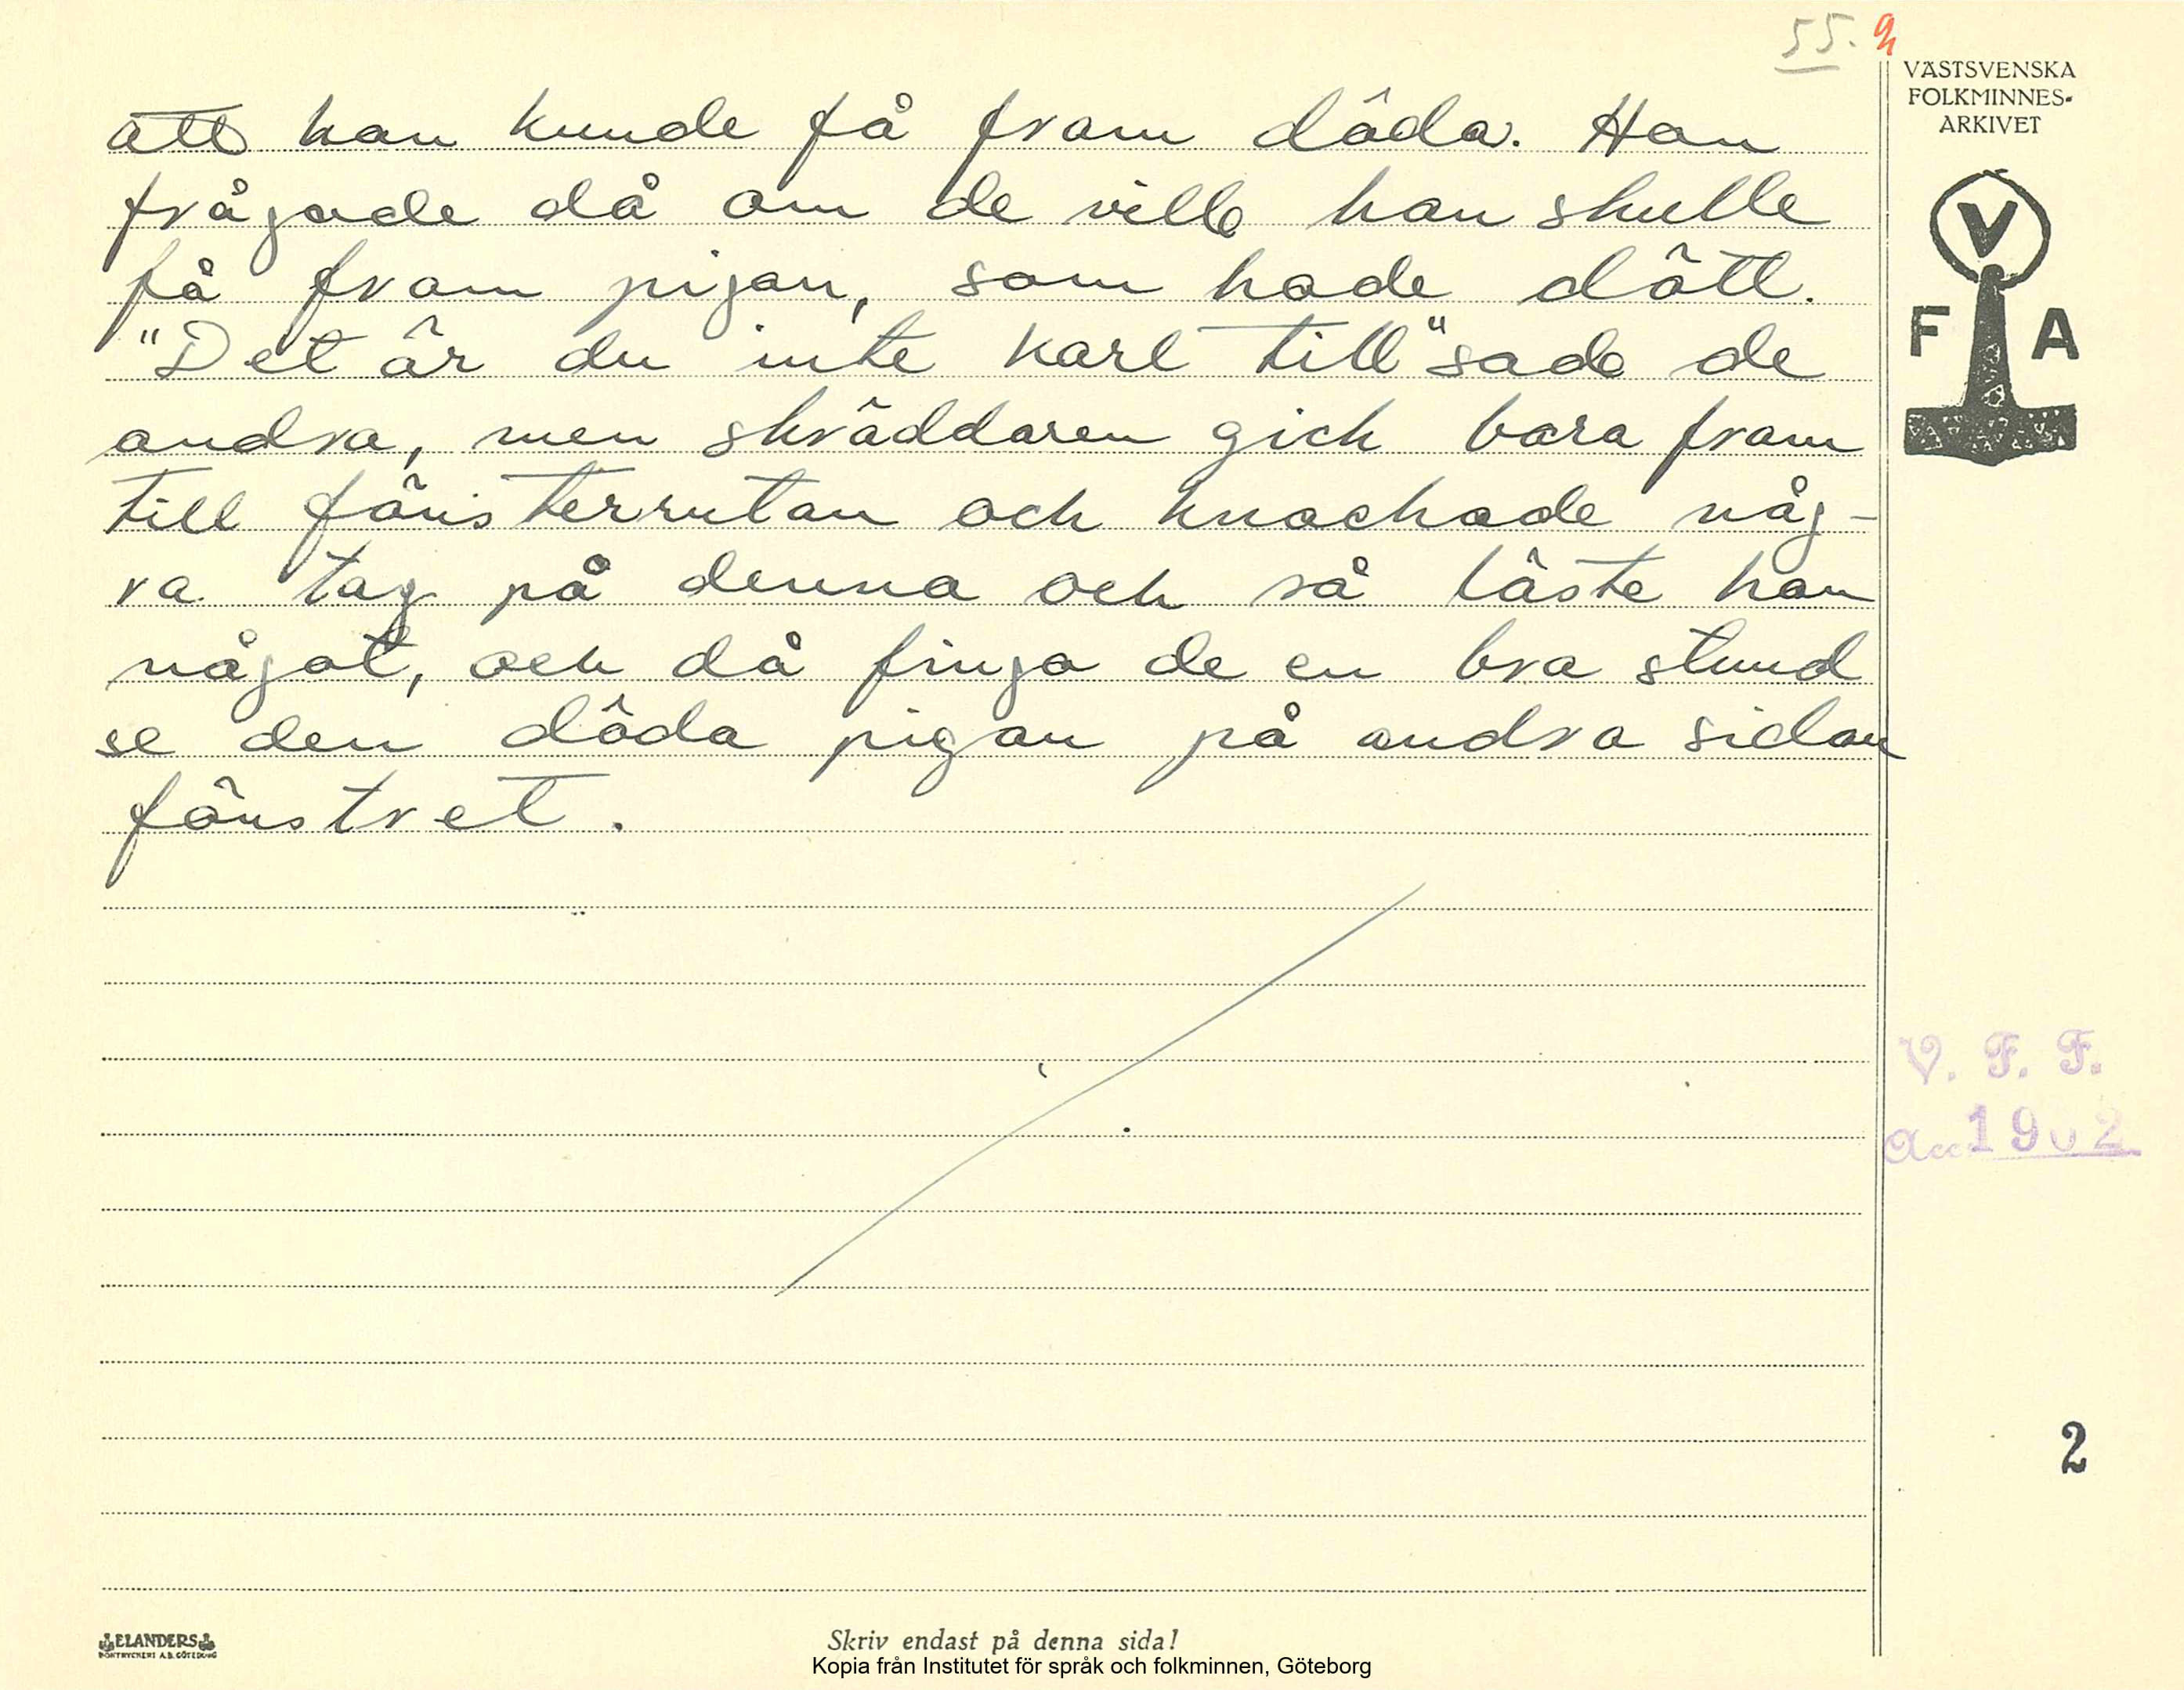 55. 2
VÄSTSVENSKA
FOLKMINNES-
ARKIVET
V
F A
att han kunde få fram döda. Han
frågade då om de ville han skulle
få fram pigan, som hade dött.
"Det är du inte karl till" sade de
andra, men skräddaren gick bara fram
till fönsterrutan och knackade någ-
ra tag på denna och så läste han
något, och då finga de en bra stund
se den döda pigan på andra sidan
fönstret.
V. F. F.
Acc 1902
2
ELANDERS
BOKTRYCKERI A.B. GÖTEBORG
Skriv endast på denna sida!
Kopia från Institutet för språk och folkminnen, Göteborg